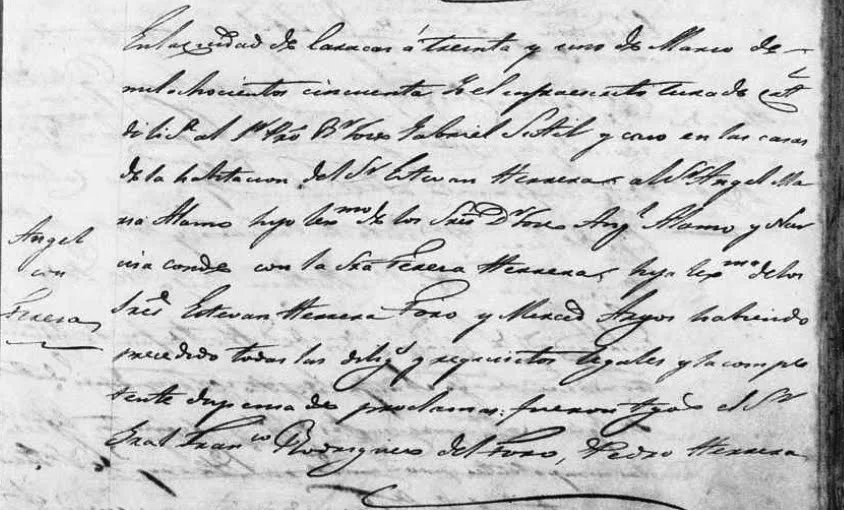 En la ciudad de Caracas á treinta y uno de Marzo de
mil ochocientos cincuenta Yo el infraescrito Cura de Catl
di licª al Sr Pbro Br José Gabriel y caso en las casas
de la habitacion del Sr Estevan Herrera, al Sr Angel Ma
ria Alamo hijo lexmo de los Sres Dr José Angl Alamo y Nar
cisa Conde con la Sra Teresa Herrera, hija lexma de los
Sres Estevan Herrera Toro y Merced habiendo
precedido todas las diligs y requisitos legales y la compe
tente dispensa de proclamas: fueron tgos el Sr
Gral Franco Rodriguez del Toro, Pedro Herrera
Angel
con
Teresa